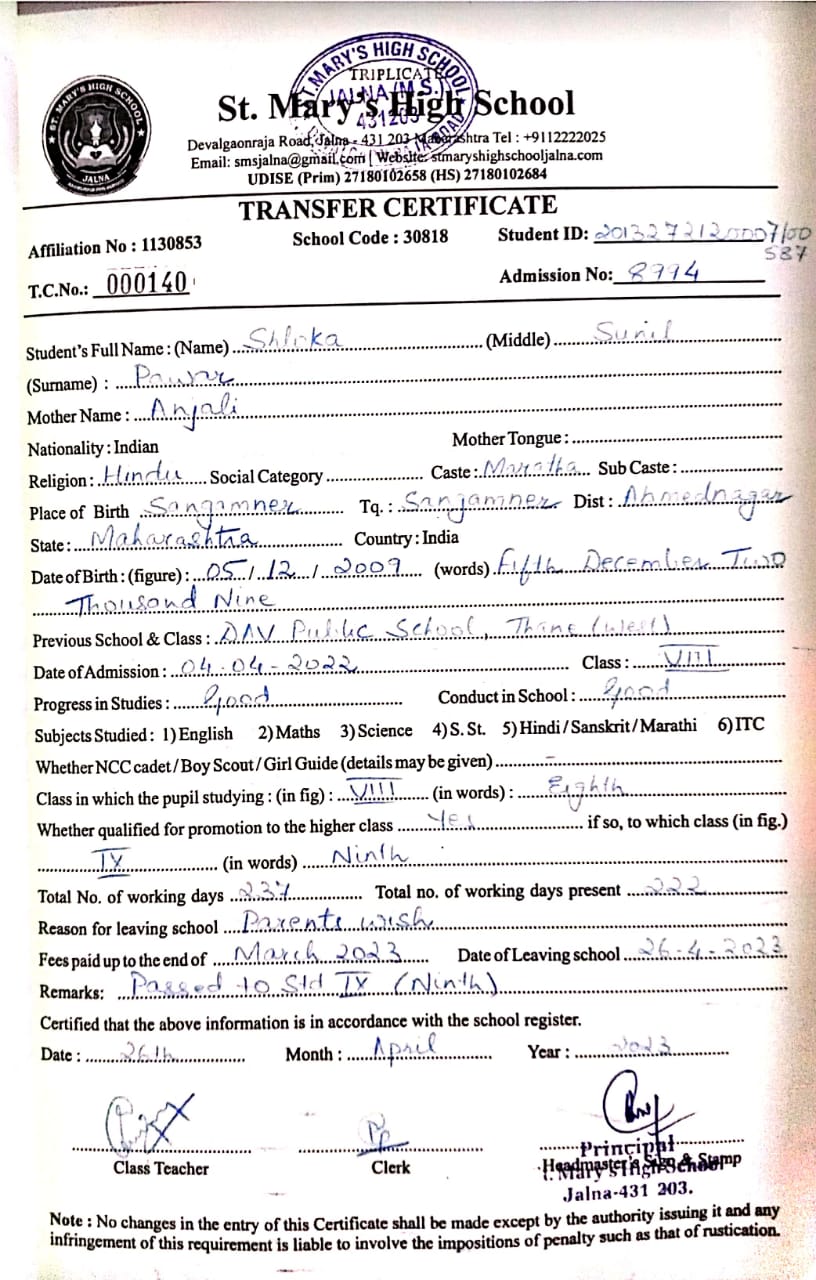 ST. MARY'S HIGH SCHOOL
JALNA
ST. MARY'S HIGH SCHOOL
TRIPLICATE
JALNA (M.S.)
431203
St. Mary's High School
Devalgaonraja Road, Jalna - 431 203 Maharashtra Tel : +9112222025
Email: smsjalna@gmail.com | Website: stmaryshighschooljalna.com
UDISE (Prim) 27180102658 (HS) 27180102684
TRANSFER CERTIFICATE
Affiliation No : 1130853 School Code : 30818 Student ID: 2013272120007/00
587
T.C.No.: 000140 Admission No: 8994
Student's Full Name : (Name) Shloka (Middle) Sunil
(Surname) : Pawar
Mother Name : Anjali
Nationality : Indian Mother Tongue :
Religion : Hindu Social Category Caste : Maratha Sub Caste :
Place of Birth Sangamner Tq. : Sangamner Dist : Ahmednagar
State : Maharashtra Country : India
Date of Birth : (figure) : 05 / 12 / 2009 (words) Fifth December Two
Thousand Nine
Previous School & Class : DAV Public School, Thane (West)
Date of Admission : 04-04-2022 Class : VIII
Progress in Studies : Good Conduct in School : Good
Subjects Studied : 1) English 2) Maths 3) Science 4) S. St. 5) Hindi / Sanskrit / Marathi 6) ITC
Whether NCC cadet / Boy Scout / Girl Guide (details may be given) -
Class in which the pupil studying : (in fig) : VIII (in words) : Eighth
Whether qualified for promotion to the higher class Yes if so, to which class (in fig.)
IX (in words) Ninth
Total No. of working days 237 Total no. of working days present 222
Reason for leaving school Parents wish
Fees paid up to the end of March 2023 Date of Leaving school 26-4-2023
Remarks: Passed to Std IX (Ninth)
Certified that the above information is in accordance with the school register.
Date : 26th Month : April Year : 2023
Class Teacher Clerk Principal
Headmaster's Sign & Stamp
St. Mary's High School
Jalna-431 203.
Note : No changes in the entry of this Certificate shall be made except by the authority issuing it and any
infringement of this requirement is liable to involve the impositions of penalty such as that of rustication.